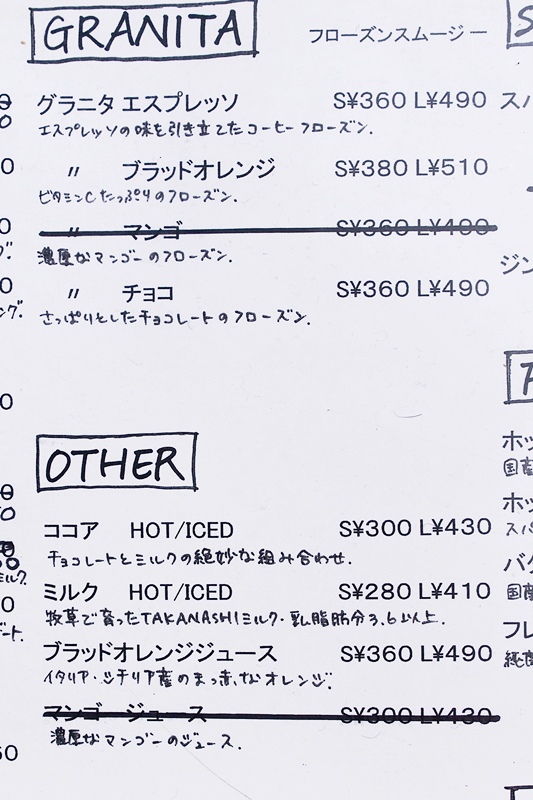 GRANITA フローズンスムージー
グラニタ エスプレッソ S¥360 L¥490
エスプレッソの味を引き立てたコーヒーフローズン.
〃 ブラッドオレンジ S¥380 L¥510
ビタミンCたっぷりのフローズン.
〃 マンゴ S¥360 L¥490
濃厚なマンゴーのフローズン.
〃 チョコ S¥360 L¥490
さっぱりとしたチョコレートのフローズン.
OTHER
ココア HOT/ICED S¥300 L¥430
チョコレートとミルクの絶妙な組み合わせ.
ミルク HOT/ICED S¥280 L¥410
牧草で育ったTAKANASHIミルク・乳脂肪分3.6以上.
ブラッドオレンジジュース S¥360 L¥490
イタリア・シチリア産のまっ赤なオレンジ.
マンゴージュース S¥300 L¥430
濃厚なマンゴーのジュース.
スパ
ジン
ホッ
国産
ホッ
スパ
バク
国産
フレ